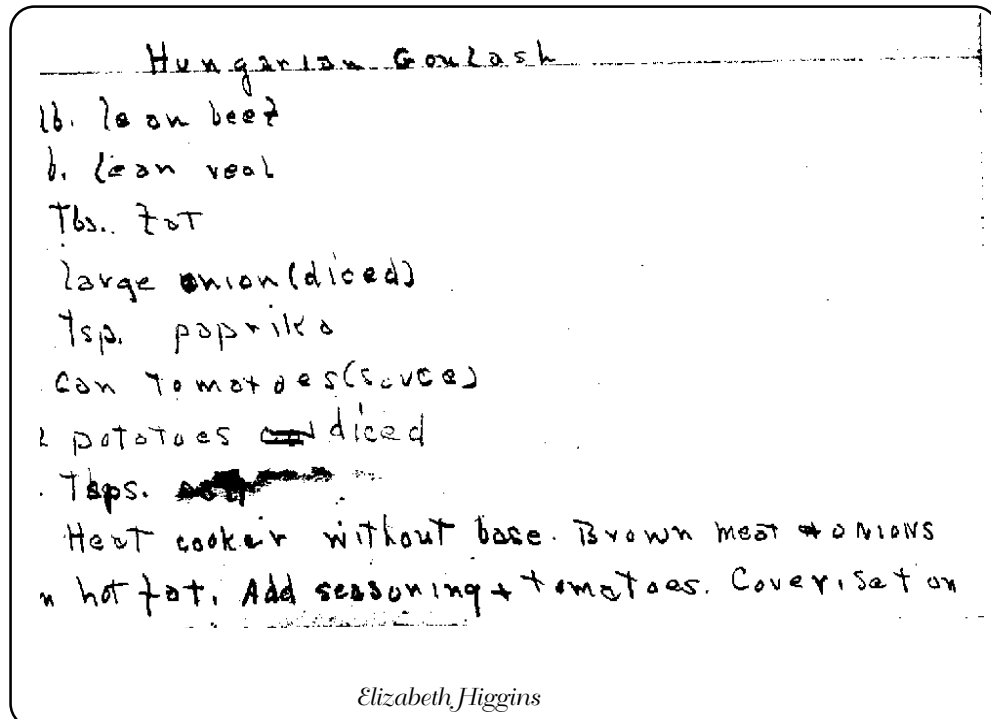 Hungarian Goulash
lb. lean beef
b. lean veal
Tbs. fat
large onion (diced)
Tsp. paprika
can Tomatoes (sauce)
2 potatoes diced
Tsps.
Heat cooker without base. Brown meat + onions
n hot fat. Add seasoning + tomatoes. Cover, set on
Elizabeth Higgins